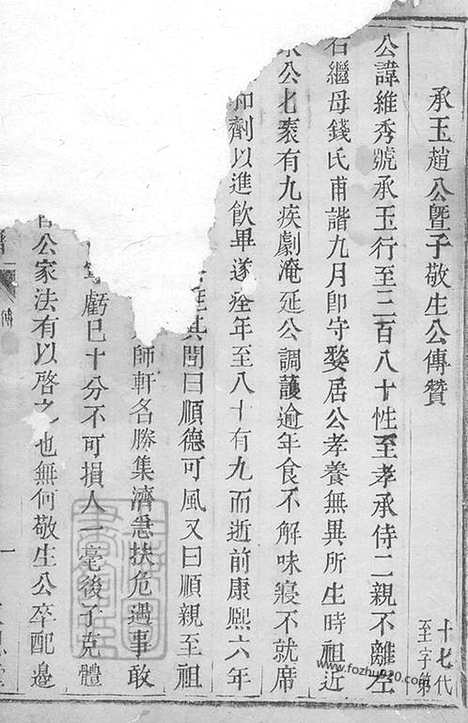 承玉趙公曁子敬生公傳贊
十七代
至字第
公諱維秀號承玉行至二百八十性至孝承侍二親不離左
右繼母錢氏甫諧九月卽守嫠居公孝養無異所生時祖近
公七袠有九疾劇淹延公調護逾年食不解味寢不就席
和劑以進飲畢遂痊年至八十有九而逝前康熙六年
其閭曰順德可風又曰順親至祖
師軒名勝集濟急扶危遇事敢
虧巳十分不可損人一毫後子克體
公家法有以啓之也無何敬生公卒配邊
傳
一
www.fozhu920.com